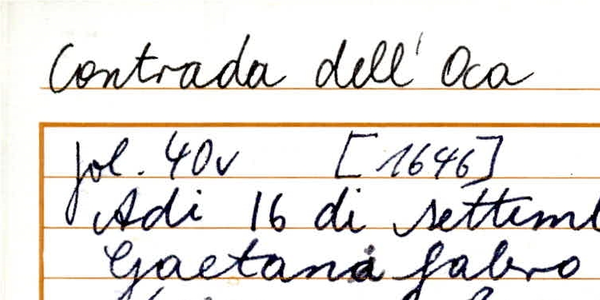 Contrada dell' Oca
fol. 40v [1646]
Adi 16 di settemb
Gaetana fabro